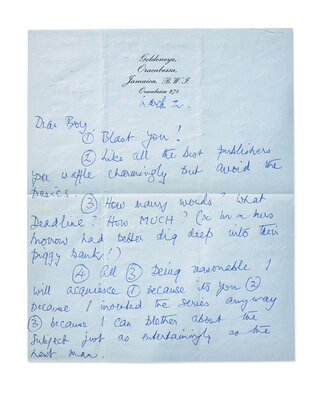 Goldeneye,
Oracabessa,
Jamaica, B.W.I.
Oracabessa 274
March 2.
Dear Boy,
① Blast you!
② Like all the best publishers
you waffle charmingly but avoid the
basics.
③ How many words? What
Deadline? How MUCH?
morrow had better dig deep into their
piggy bank!)
④ All ③ being reasonable I
will acquiesce ① because its you ②
because I invented the series anyway
③ because I can blether about the
subject just as entertainingly as the
next man.